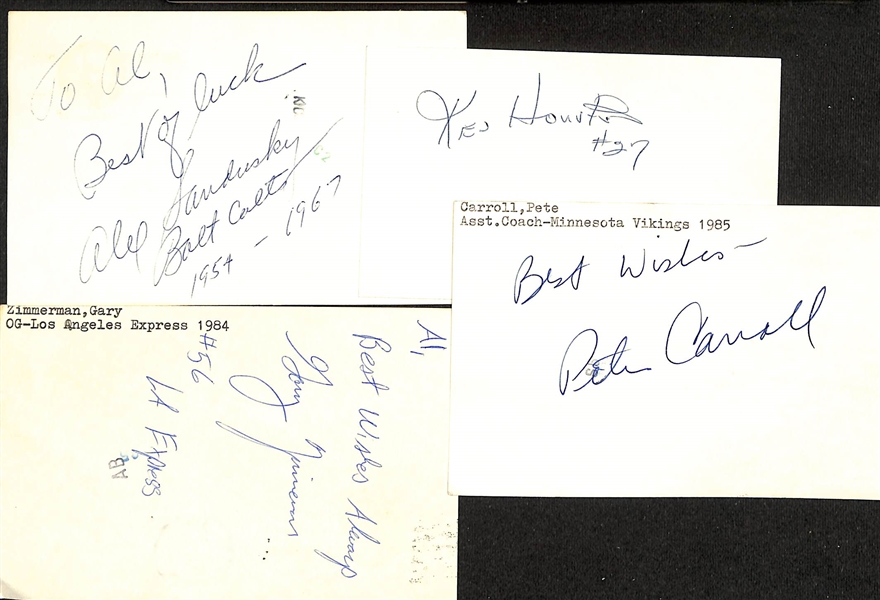 To Al,
Best of luck
Alex Sandusky
Balt Colts
1954 - 1967
Ken Houston
#27
Carroll,Pete
Asst.Coach-Minnesota Vikings 1985
Best Wishes
Pete Carroll
Zimmerman,Gary
OG-Los Angeles Express 1984
Al,
Best Wishes Always
Gary Zimmerman
#56
LA Express
AB